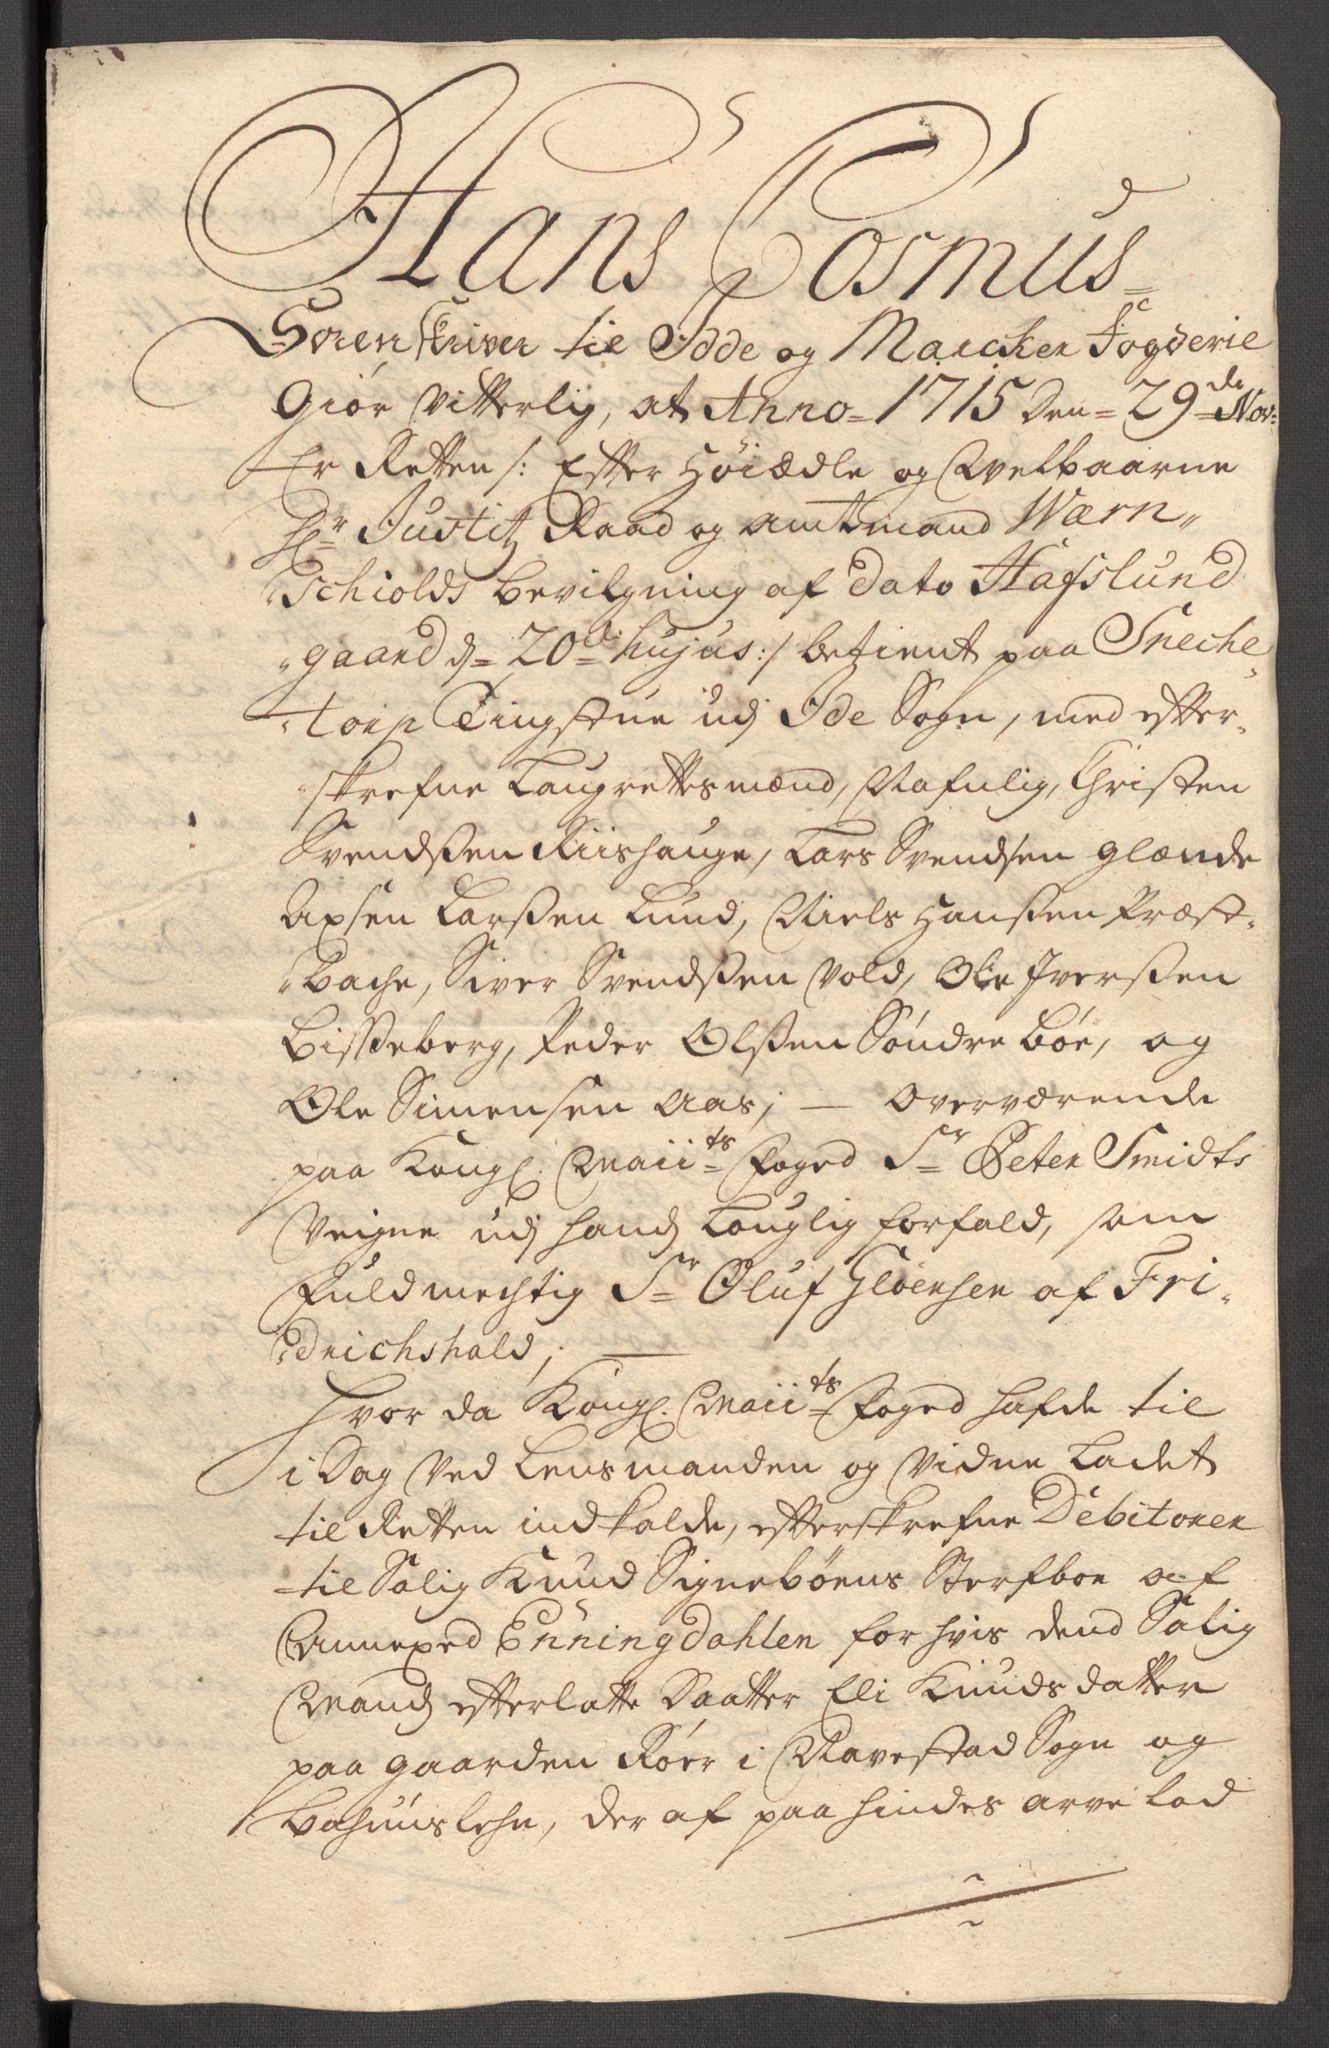 Hans Cosmus
Sorenskriver til Idde og Marcker Fogderie
Giör Vitterlig, at Anno 1715 Den 29de Nov:
Er Retten /: Efter Höiædle og Welbaarne
Hr Justitz Raad og amtmand Wærn
Schiolds bevilgning af dato Hafslund
gaard d= 20de hujus :/ betient paa Sneche-
torp Tingstue udj Ide Sogn, med efter-
skrefne Laugrettesmænd, Nafnlig, Christen
Svendssen Riishauge, Lars Svendsen Glænde
Axsen Larssen Lund, Niels Hanssen Præst-
backe, Siver Svendssen Vold, Ole Iverssen
Bisseberg, Peder Olssen Söndre böe, og
Ole Simensen Aas; — overværende
paa Kongl. Maiits foged Sr Peter Smidts
Veigne udj hans Louglig forfald, som
Fuldmechtig Sr Oluf Gloersen af Fri-
drichshald; —
Hvor da Kongl. Maiits foged hafde til
i Dag ved Lensmanden og vidne Ladet
til Retten indkalde, efterskrefne Debitorer
til Salig Knud Signebøens Sterfboe af
Annexed Enningdahlen for hvis dend Salig
Mands efterlatte Daatter Eli Knudsdatter
paa gaarden Röer i Navestad Sogn og
Bahuuslehn, der af paa hindes arve lod